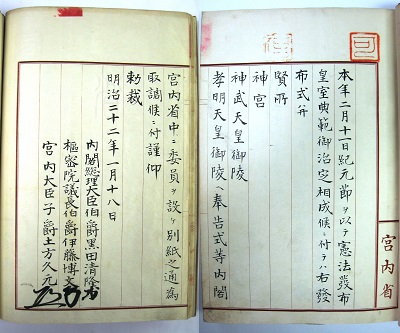 可
本年二月十一日紀元節ヲ以テ憲法發布
皇室典範御治定相成候ニ付テハ右發
布式并
賢所
神宮
神武天皇御陵
孝明天皇御陵ヘ奉告式等内閣
宮内省
宮内省中ニ委員ヲ設ケ別紙之通為
取調候ニ付謹仰
勅裁
明治二十二年一月十八日
内閣総理大臣伯爵黒田清隆
樞密院議長伯爵伊藤博文
宮内大臣子爵土方久元